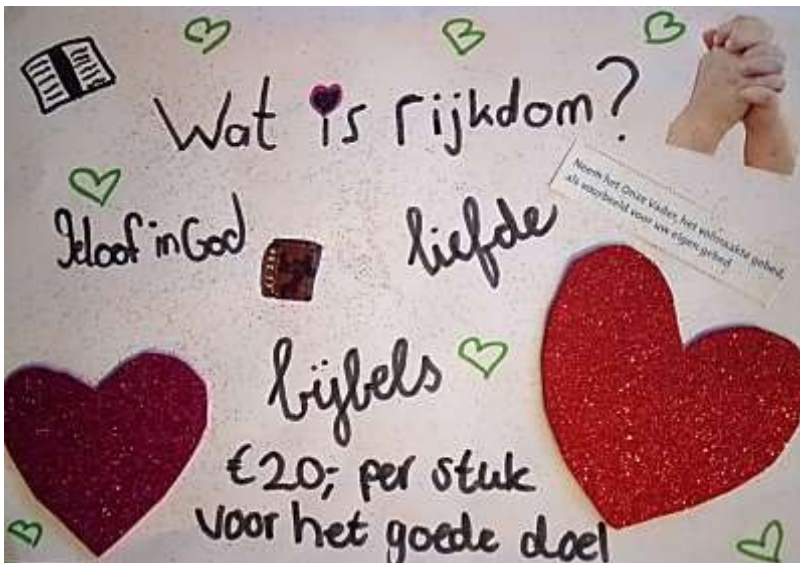 Wat is rijkdom?
Neem het Onze Vader, het volmaakte gebed,
als voorbeeld voor uw eigen gebed
Geloof in God
liefde
bijbels
€20,- per stuk
voor het goede doel